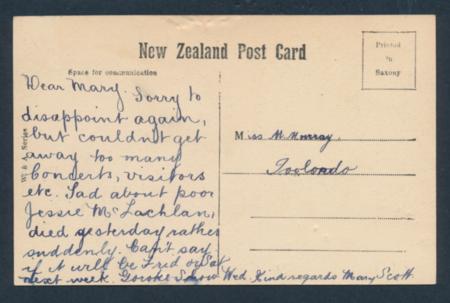 New Zealand Post Card
Space for communication
Printed
in
Saxony
W. & A. Series
Dear Mary. Sorry to
disappoint again,
but couldn't get
away too many
Concerts, visitors
etc. Sad about poor
Jessie McLachlan,
died yesterday rather
suddenly. Can't say
if it will be Frid or Sat
next week. Goroke Show Wed. Kind regards Mary Scott.
Miss M. Murray.
Toolondo